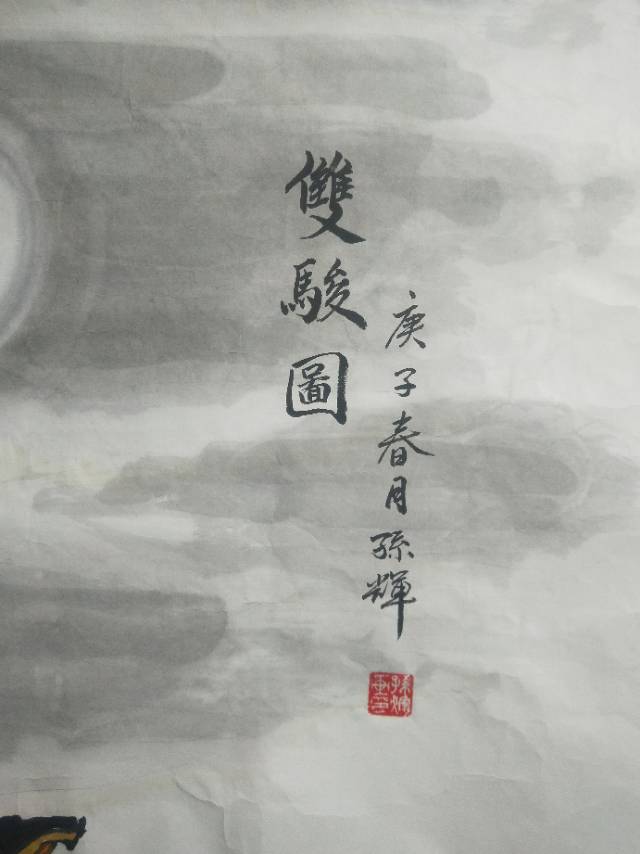 雙駿圖
庚子春月孫輝